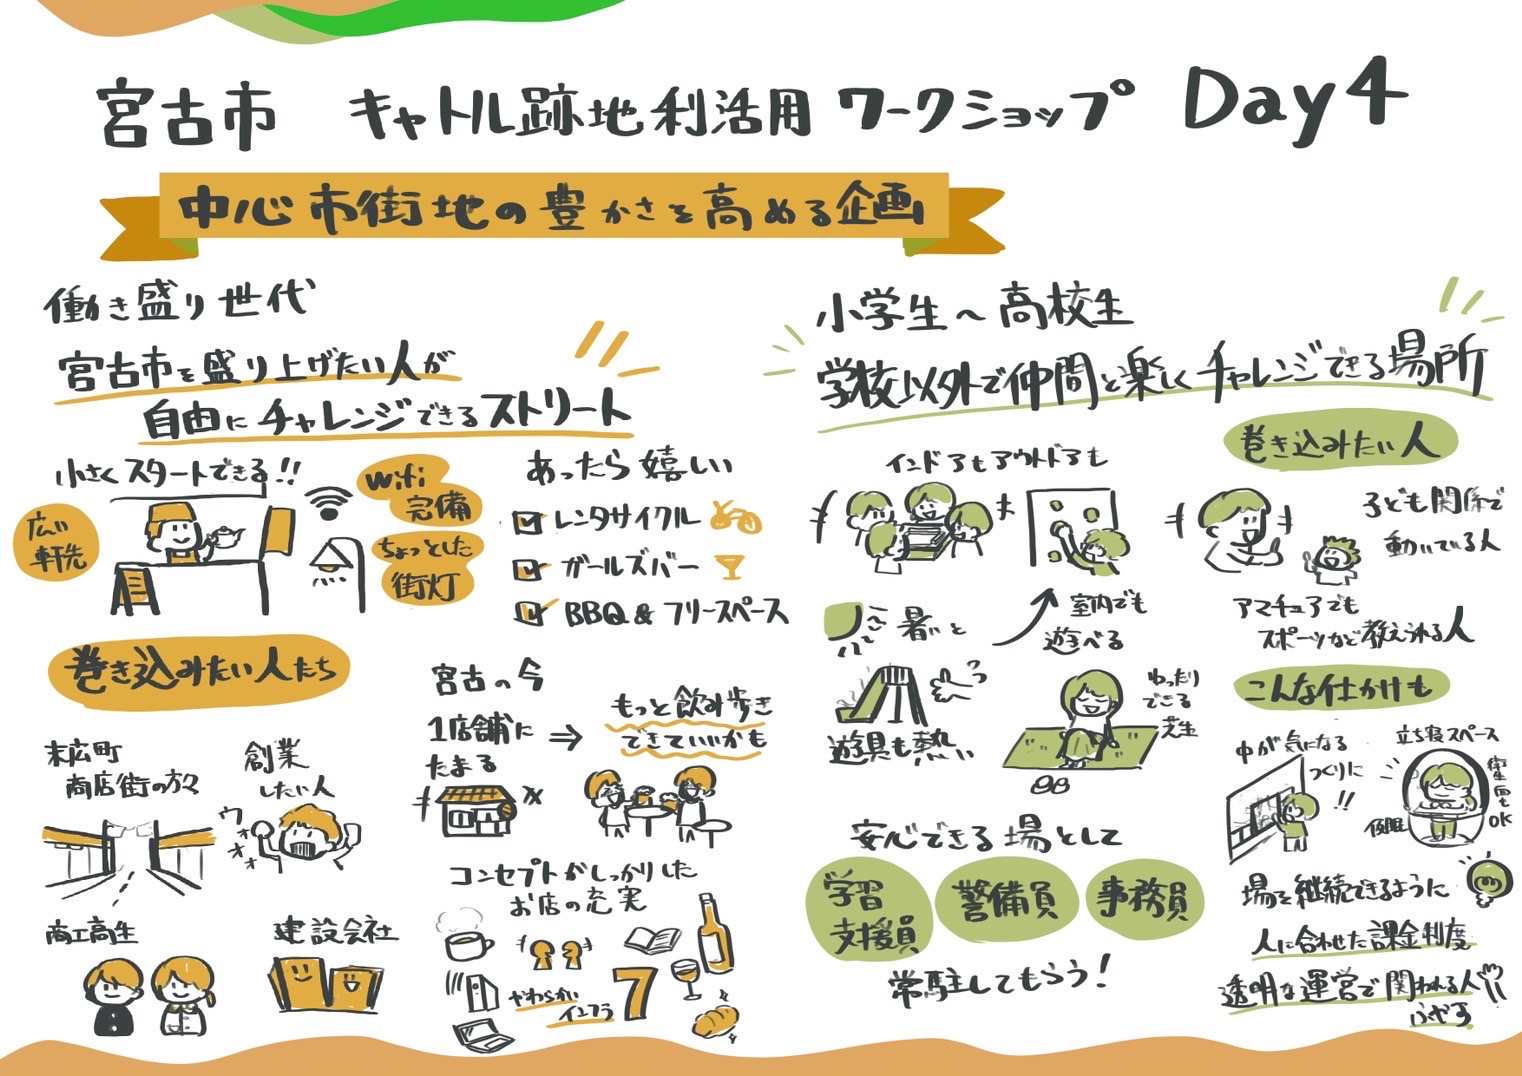 宮古市 キャトル跡地利活用 ワークショップ Day4
中心市街地の豊かさを高める企画
働き盛り世代
宮古市を盛り上げたい人が
自由にチャレンジできるストリート
小さくスタートできる!!
広い
軒先
wifi
完備
ちょっとした
街灯
あったら嬉しい
レンタサイクル
ガールズバー
BBQ & フリースペース
巻き込みたい人たち
末広町
商店街の方々
創業
したい人
ウォオオ
商工高生
建設会社
宮古の今
1店舗に
たまる
⇒
もっと飲み歩き
できていいかも
コンセプトがしっかりした
お店の充実
やわらかい
インフラ
7
小学生〜高校生
学校以外で仲間と楽しくチャレンジできる場所
インドアもアウトドアも
室内でも
遊べる
暑いと
遊具も熱い
ゆったり
できる
芝生
安心できる場として
学習
支援員
警備員
事務員
常駐してもらう!
巻き込みたい人
子ども関係で
動いている人
アマチュアでも
スポーツなど教えられる人
こんな仕かけも
中が気になる
つくりに
!!
立ち寝スペース
仮眠
充電もOK
場を継続できるように
人に合わせた課金制度
透明な運営で関われる人
ふやす